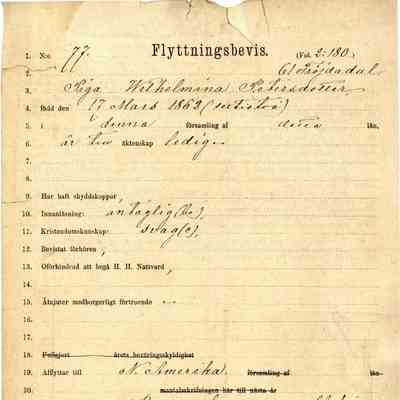 1. N:o 77. Flyttningsbevis. (Vol. 2:180.)
2. Fröjdadal
3. Piga Wilhelmina Petersdotter,
4. född den 17 Mars 1862
5. i denna församling af detta län,
6. är till äktenskap ledig.
7.
8.
9. Har haft skyddskoppor,
10. Innanläsning: antaglig (bc),
11. Kristendomskunskap: svag (c),
12. Bevistat förhören,
13. Oförhindrad att begå H. H. Nattvard,
14.
15. Åtnjuter medborgerligt förtroende
16.
17.
18. Fullgjort årets beväringsskyldighet
19. Afflyttar till N. Amerika. församling af län
20. mantalsskrifningen här till nästa år